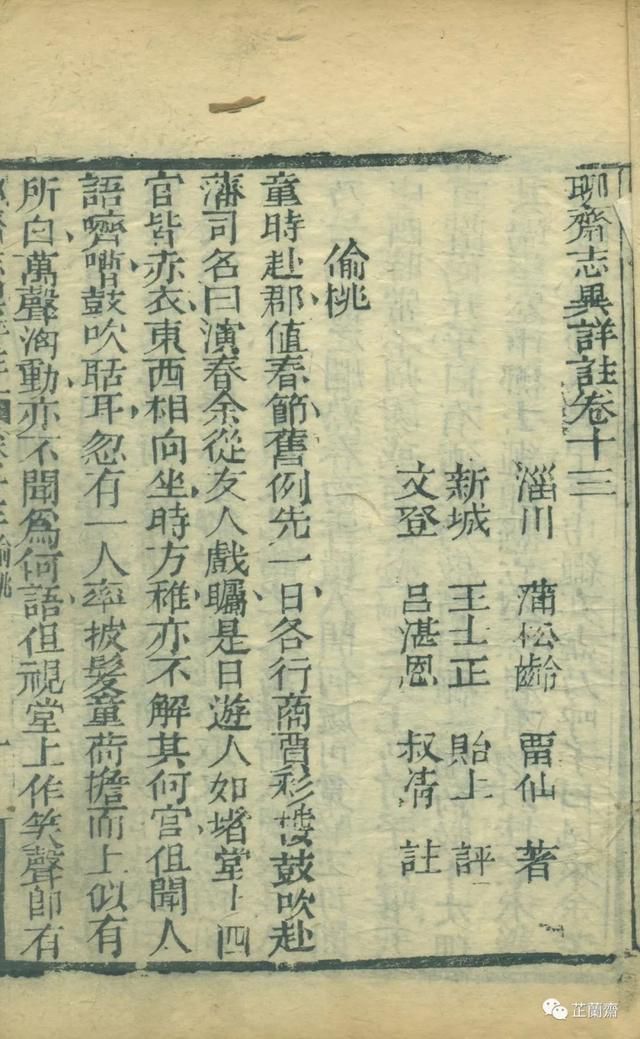 聊齋志異詳註卷十三
淄川 蒲松齡 畱仙 著
新城 王士正 貽上 評
文登 呂湛恩 叔淸 註
偷桃
童時赴郡値春節舊例先一日各行商賈彩樓鼓吹赴
藩司名曰演春余從友人戲矚是日遊人如堵堂上四
官皆赤衣東西相向坐時方稚亦不解其何官但聞人
語嚌嘈鼓吹聒耳忽有一人率披髮童荷擔而上似有
所白萬聲洶動亦不聞爲何語但視堂上作笑聲卽有
偷桃
芷蘭齋